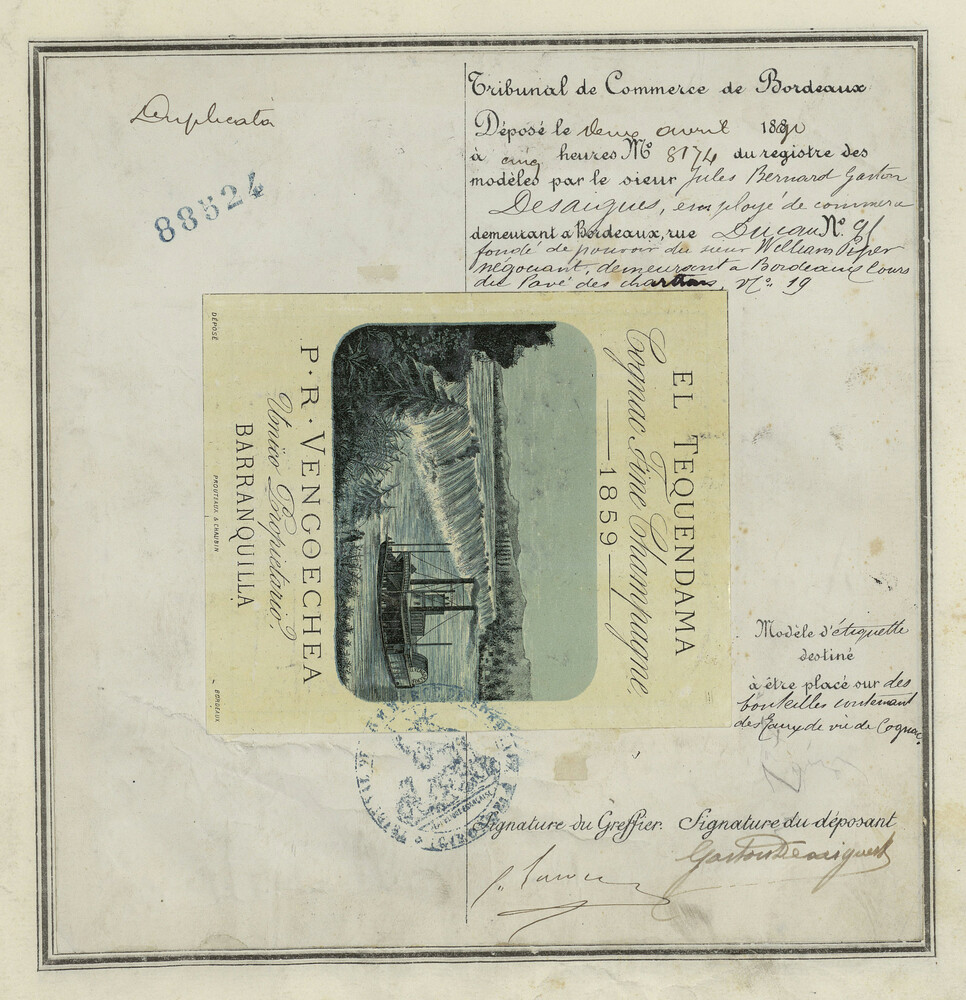 Duplicata
88524
Tribunal de Commerce de Bordeaux
Déposé le deux avril 1890
à cinq heures N° 8174 du registre des
modèles par le sieur Jules Bernard Gaston
Desaigues, employé de commerce
demeurant à Bordeaux, rue Ducau N° 91
fondé de pouvoir du sieur William Piper
négociant, demeurant à Bordeaux Cours
du Pavé des chartrons, N° 19
EL TEQUENDAMA
Cognac Fine Champagne,
1859
P·R·VENGOECHEA
Unico Proprietario,
BARRANQUILLA
DÉPOSÉ
PROUTEAUX & CHAUBIN
BORDEAUX
Modèle d'étiquette
destiné
à être placé sur des
bouteilles contenant
des Eaux de vie de Cognac.
Signature du Greffier. Signature du déposant